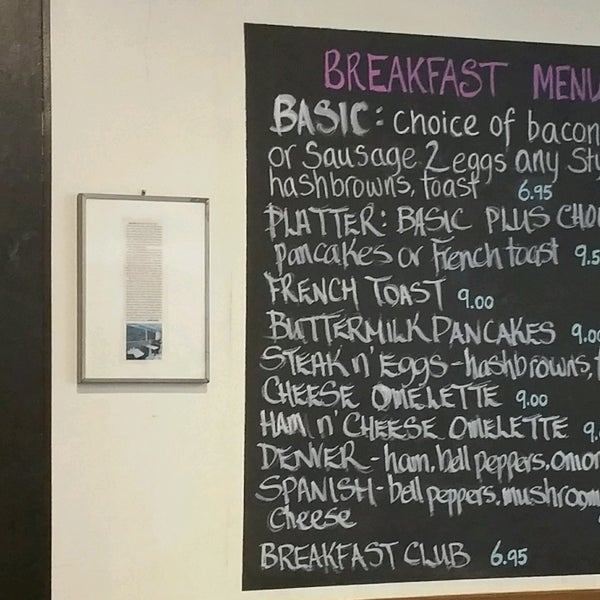 BREAKFAST MENU
BASIC: choice of bacon
or Sausage 2 eggs any Sty
hashbrowns, toast 6.95
PLATTER: BASIC PLUS CHOI
pancakes or French toast 9.5
FRENCH TOAST 9.00
BUTTERMILK PANCAKES 9.00
STEAK n' Eggs - hashbrowns, t
CHEESE OMELETTE 9.00
HAM n' CHEESE OMELETTE 9.
DENVER - ham, bell peppers, onion
SPANISH - bell peppers, mushroom
cheese
BREAKFAST CLUB 6.95